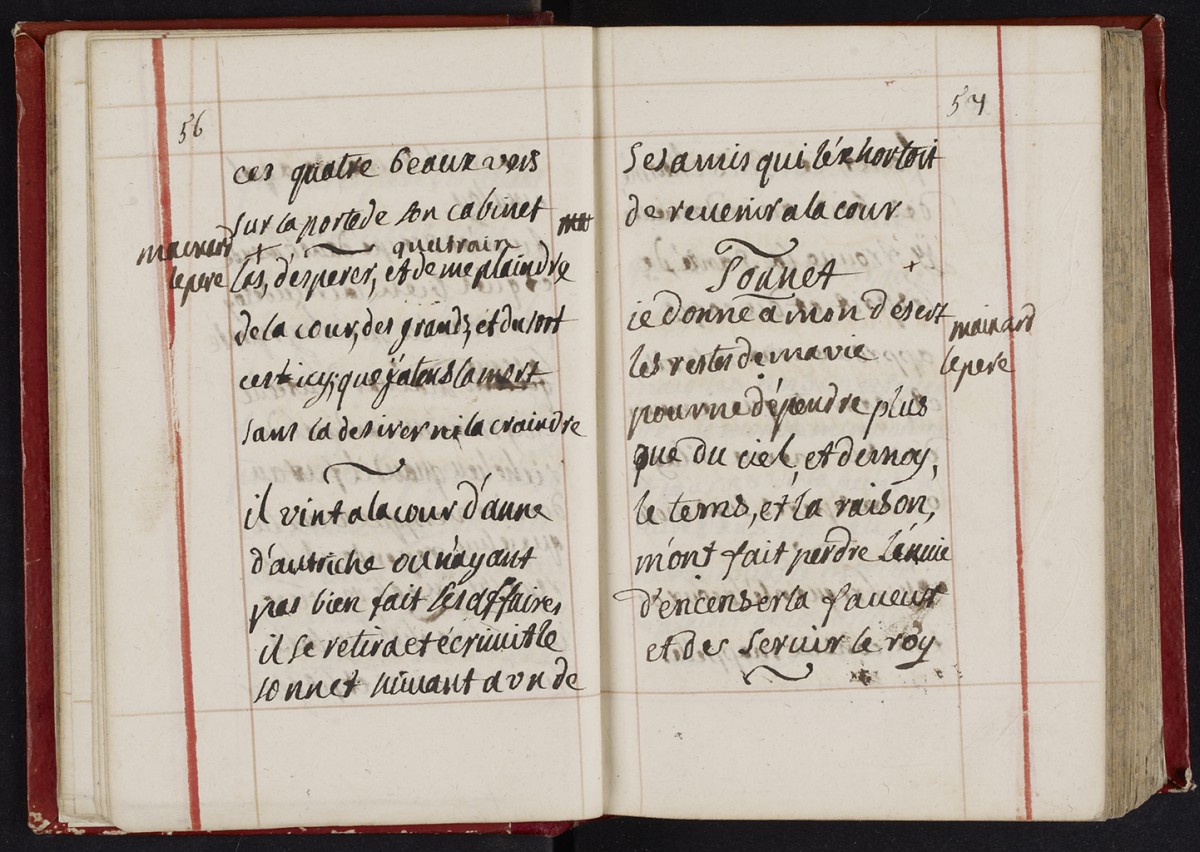 56
ces quatre beaux vers
sur la porte de son cabinet
quatrain
mainard
le pere
las, d'ésperer, et de me plaindre
de la cour, des grands, et du sort
cest icy, que j'atens la mort
sans la desirer ni la craindre
il vint a la cour d'anne
d'autriche ou n'ayant
pas bien fait ses affaires
il se retira et écriuit le
sonnet suiuant a vn de
57
ses amis qui l'éxhortoit
de reuenir a la cour
Sonnet
ie donne a mon désert
les restes de ma vie
mainard
le pere
pour ne dépendre plus
que du ciel, et de moy,
le tems, et la raison,
m'ont fait perdre l'énuie
d'encenser la faueur
et de s seruir le roy